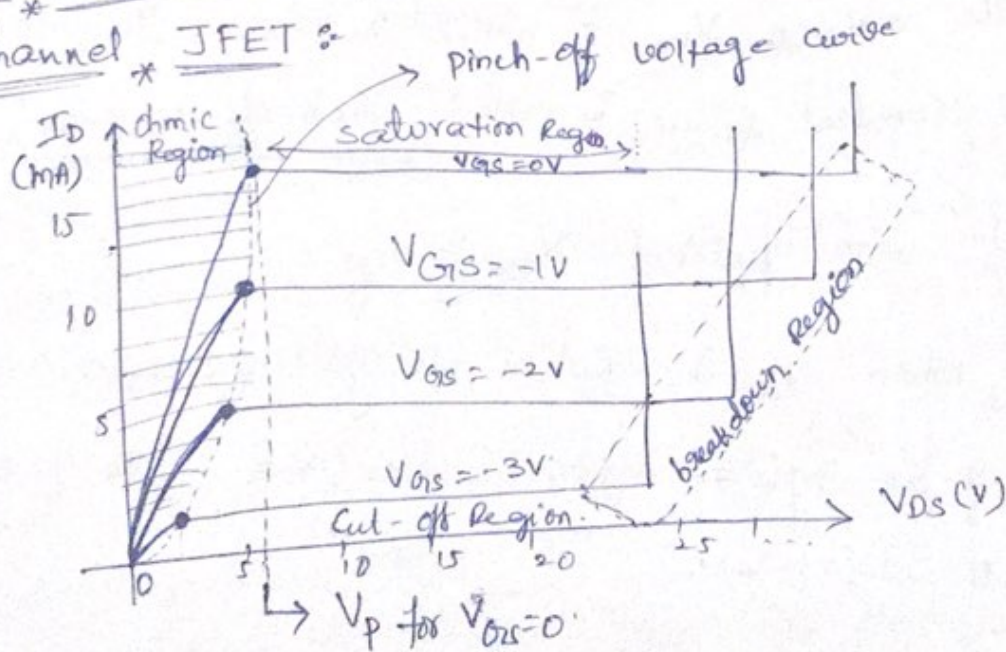 JFET :-
pinch-off voltage curve
ID
(mA)
ohmic
Region
saturation Region.
VGS = 0V
15
VGS = -1V
10
VGS = -2V
5
breakdown Region
VGS = -3V
Cut-off Region.
VDS (V)
0
5
10
15
20
25
VP for VGS=0